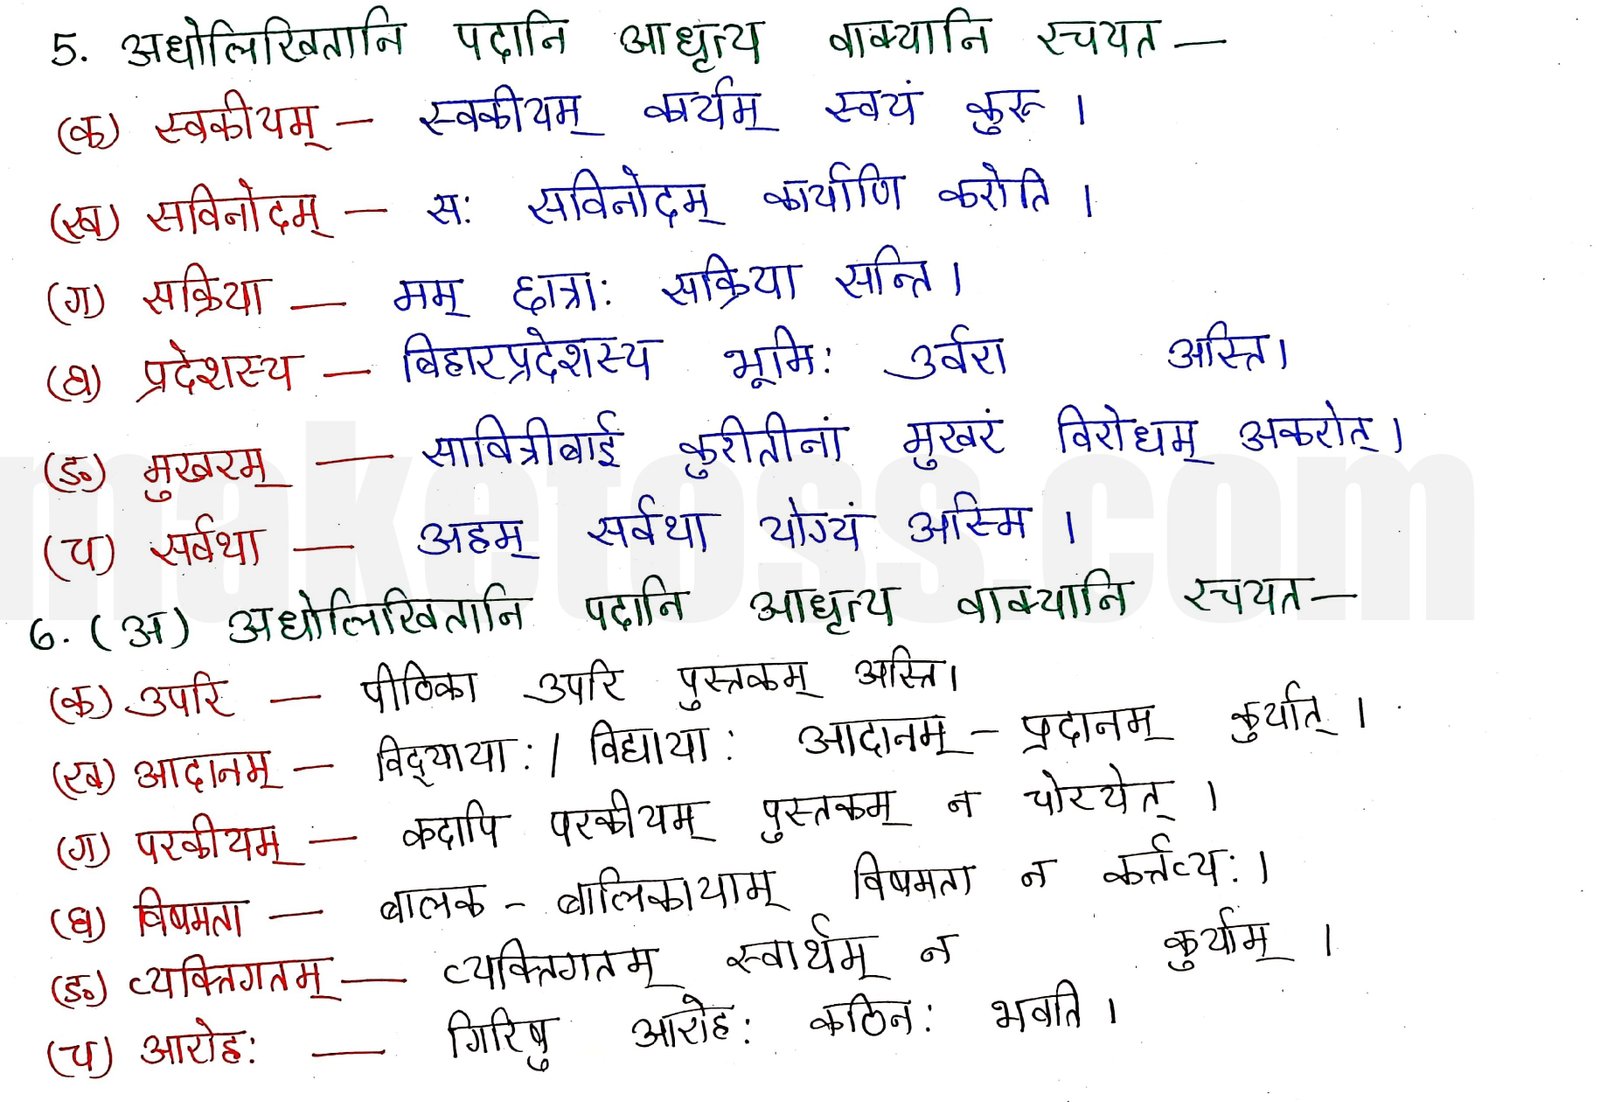 5. अधोलिखितानि पदानि आधृत्य वाक्यानि रचयत —
(क) स्वकीयम् — स्वकीयम् कार्यम् स्वयं कुरू ।
(ख) सविनोदम् — सः सविनोदम् कार्याणि करोति ।
(ग) सक्रिया — मम् छात्राः सक्रिया सन्ति ।
(घ) प्रदेशस्य — बिहारप्रदेशस्य भूमिः उर्वरा अस्ति ।
(ङ) मुखरम् — सावित्रीबाई कुरीतीनां मुखरं विरोधम् अकरोत् ।
(च) सर्वथा — अहम् सर्वथा योग्यं अस्मि ।
6. (अ) अधोलिखितानि पदानि आधृत्य वाक्यानि रचयत —
(क) उपरि — पीठिका उपरि पुस्तकम् अस्ति ।
(ख) आदानम् — विद्‌यायाः / विद्यायाः आदानम् - प्रदानम् कुर्यात् ।
(ग) परकीयम् — कदापि परकीयम् पुस्तकम् न चोरयेत् ।
(घ) विषमता — बालक - बालिकायाम् विषमता न कर्त्तव्यः ।
(ङ) व्यक्तिगतम् — व्यक्तिगतम् स्वार्थम् न कुर्याम् ।
(च) आरोहः — गिरिषु आरोहः कठिनः भवति ।
maketoss.com